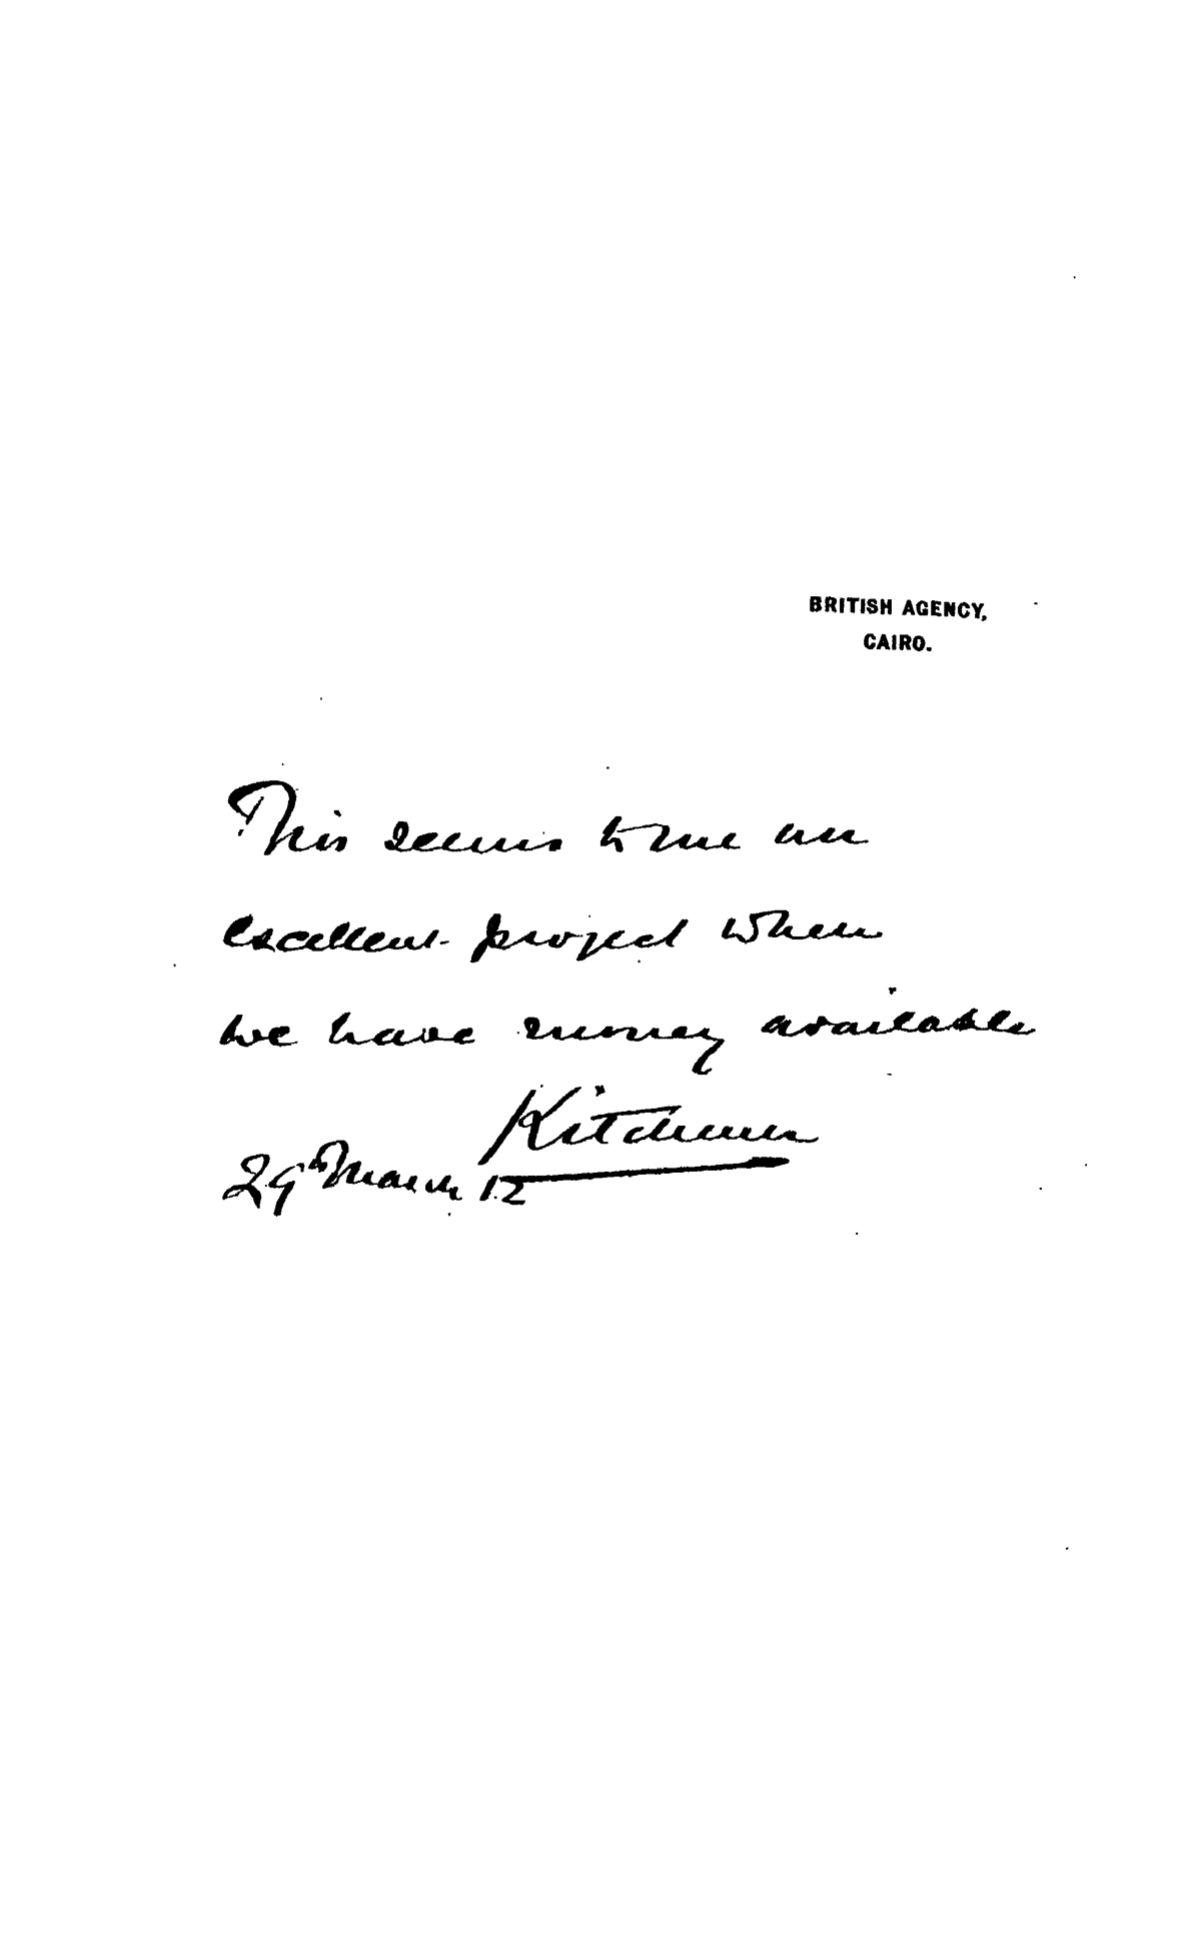 BRITISH AGENCY,
CAIRO.
This seems to me an
excellent project when
we have money available
Kitchener
29th March 12